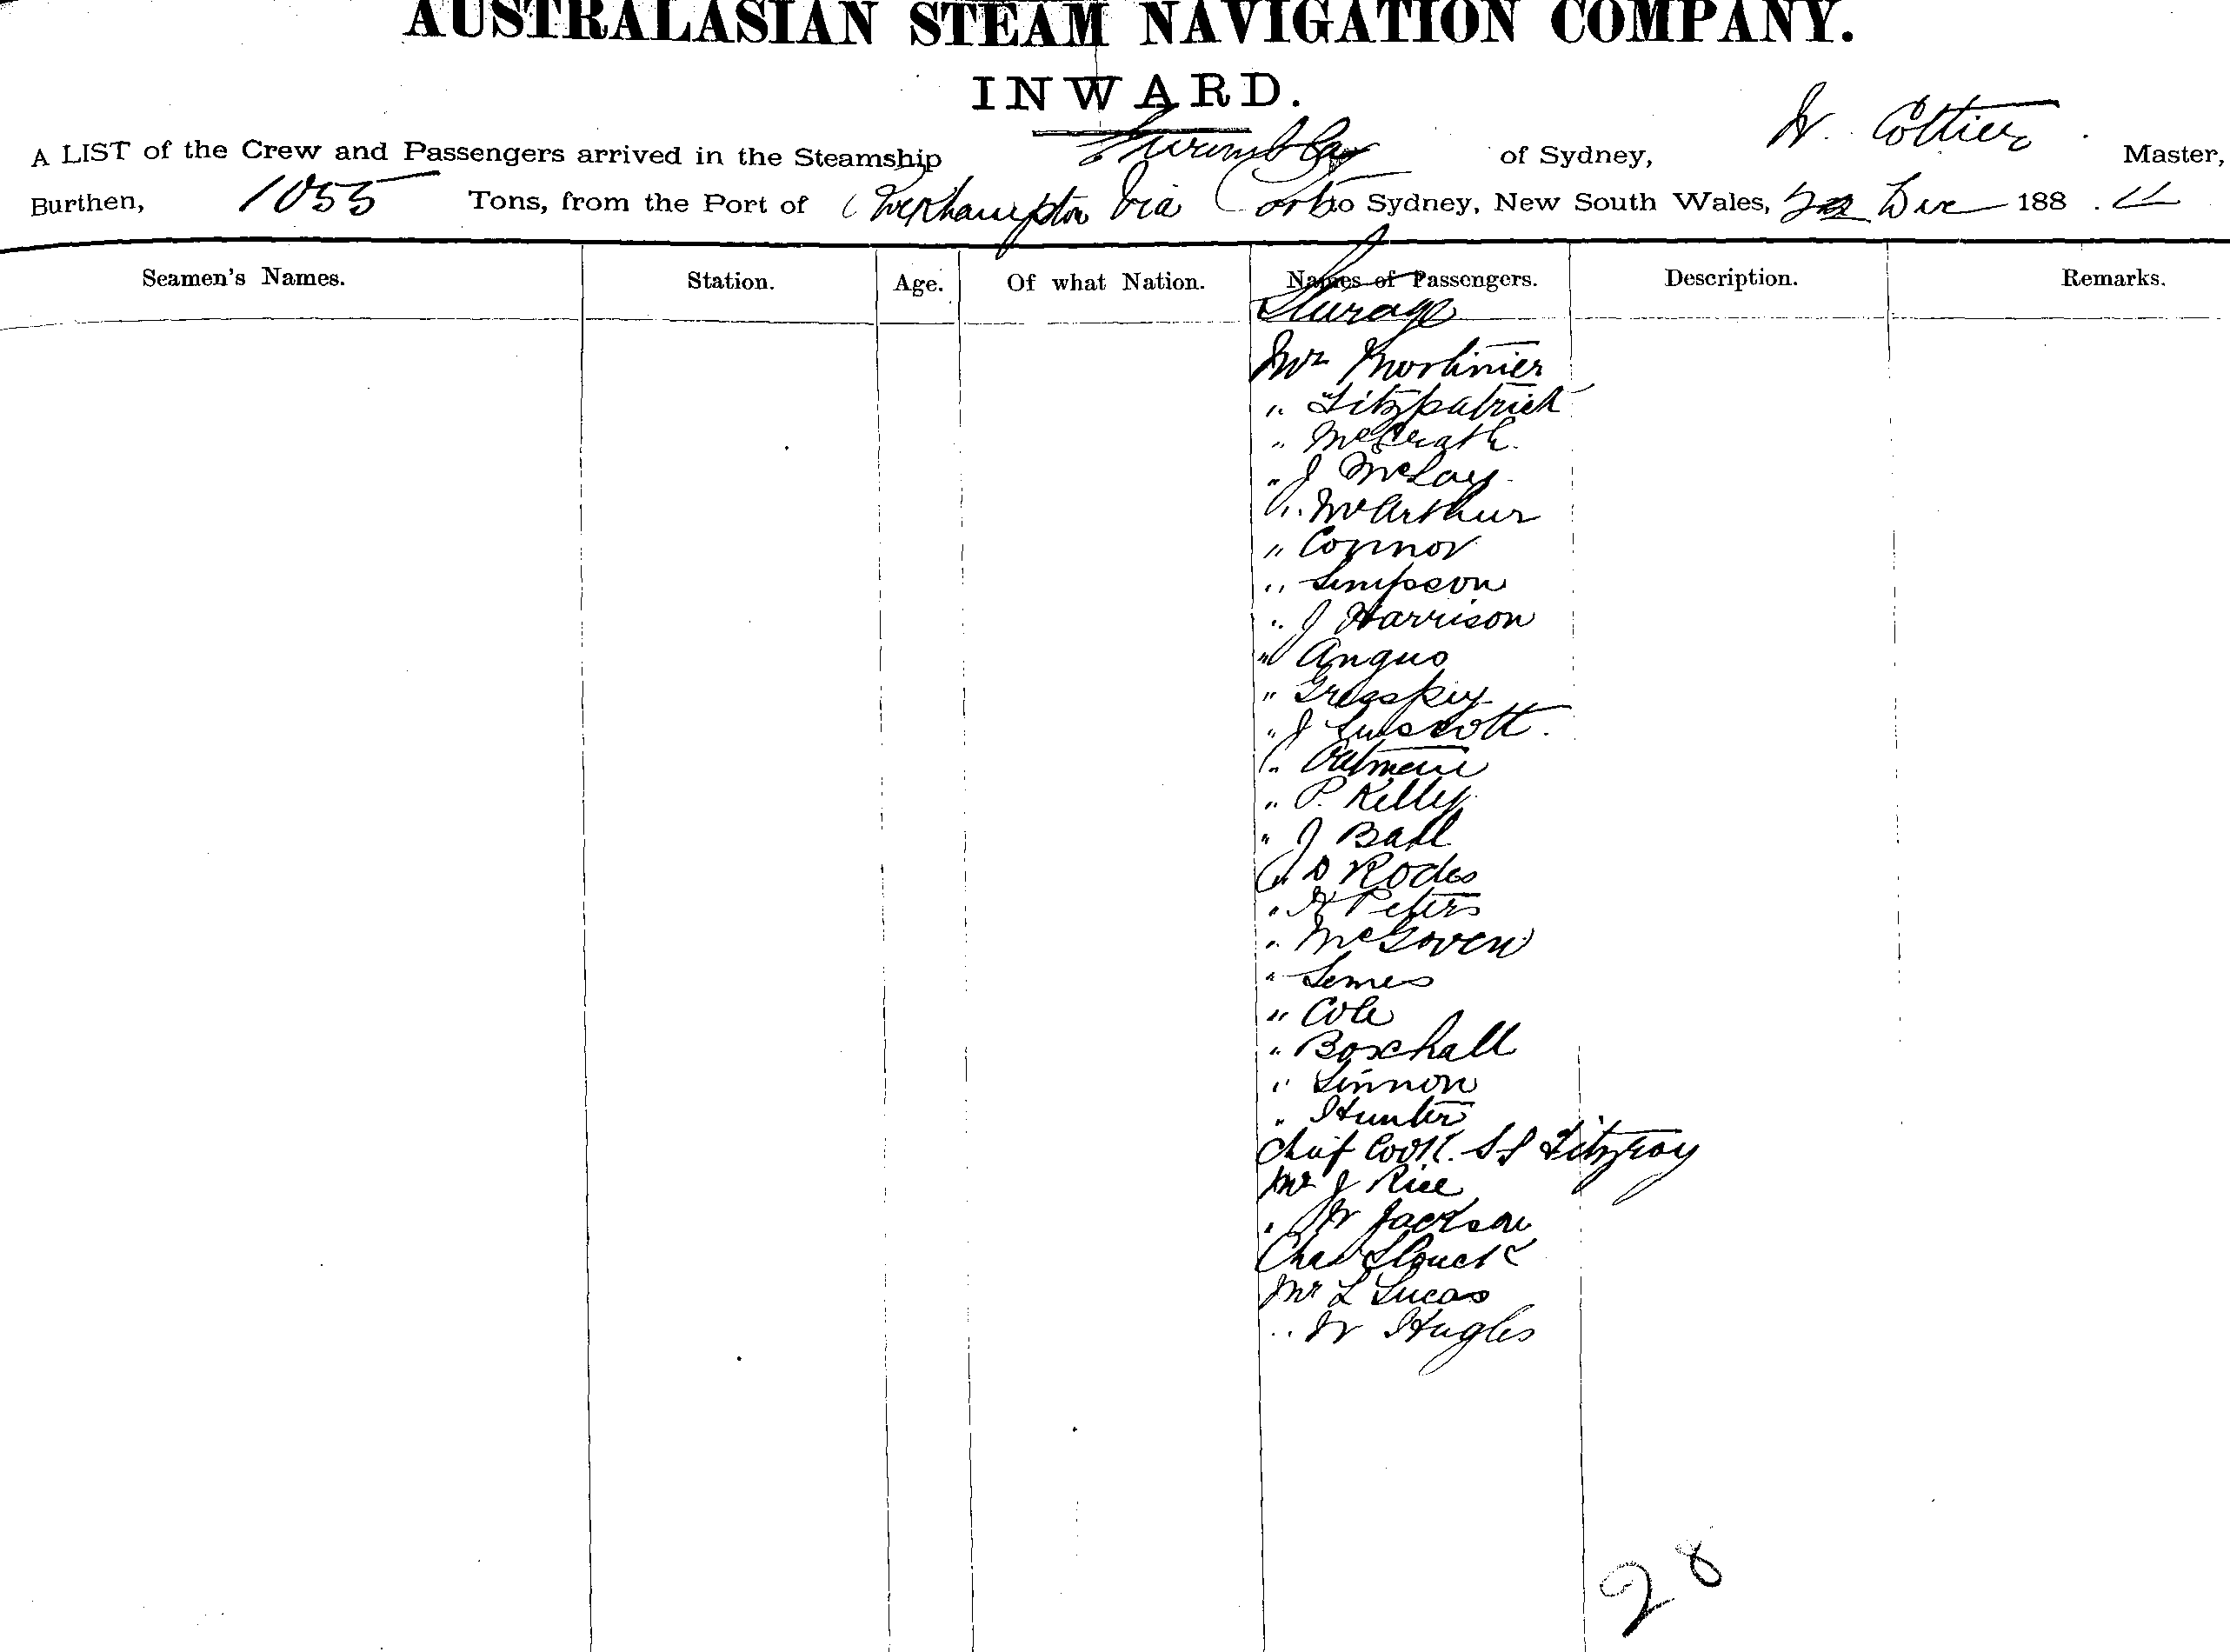 AUSTRALASIAN STEAM NAVIGATION COMPANY.
INWARD.
A LIST of the Crew and Passengers arrived in the Steamship Gurumbla of Sydney, W. Cottier Master,
Burthen, 1055 Tons, from the Port of Rockhampton Via to Sydney, New South Wales, 22 Dec 188
Seamen's Names. Station. Age. Of what Nation. Names of Passengers. Description. Remarks.
Sturage
Mr Mortimier
" Fitzpatrick
" McGrath
" J McLay
" McArthur
" Connor
" Simpson
" J Harrison
" Angus
"
" J Luscott.
" Oatman
" P. Kelly
" J Ball
" D Rodes
" H Peters
" McGoven
" Semes
" Cole
" Boxhall
" Linnon
" Hunter
Chief Cook. SS Fitzroy
Mr J Rice
" W Jackson
Chas
Mr L Lucas
" W Hughs
28